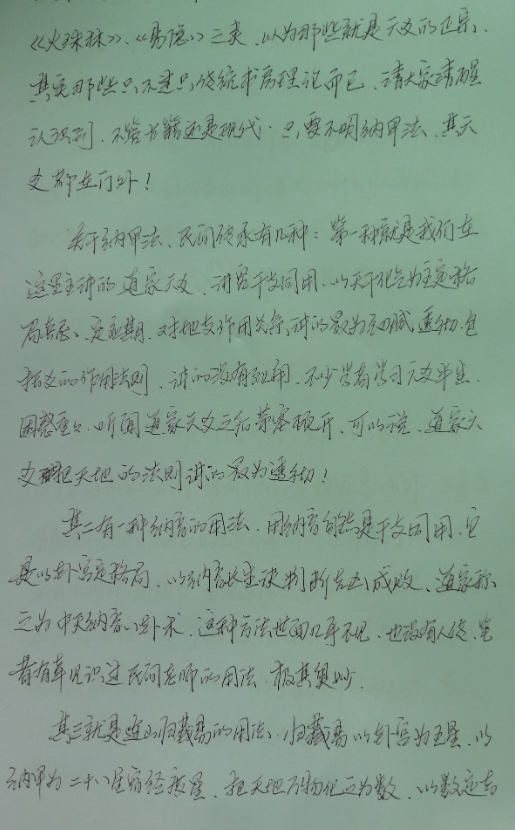 《火珠林》、《易隐》之类，以为那些就是六爻的正宗，
其实那些只不过只传统书房理论而已，请大家清醒
认识到，不管古籍还是现代，只要不明纳甲法，其六
爻都在门外！
关于纳甲法、民间传承有几种：第一种就是我们在
这里主讲的道家六爻，讲究干支同用，以天干化气为主定格
局，定应期，对地支作用关系讲的最为细腻透彻，包
括爻的作用法则，讲的没有疑用，不少学者学习六爻半生，
困惑重重，听闻道家六爻之后茅塞顿开，可以说，道家六
爻把天地的法则讲的最为透彻！
其二有一种纳音的用法，用纳音自然是干支同用，它
是以卦宫定格局，以纳音长生诀判断吉凶成败，道家称
之为中天纳音心卦术，这种方法世面几乎不见，也没有人传，笔
者有幸见识过民间老师的用法，极其奥妙。
其三就是连山归藏易的用法，归藏易以卦宫为五星，以
纳甲为二十八星宿经度星，把天地万物化之为数，以数定吉